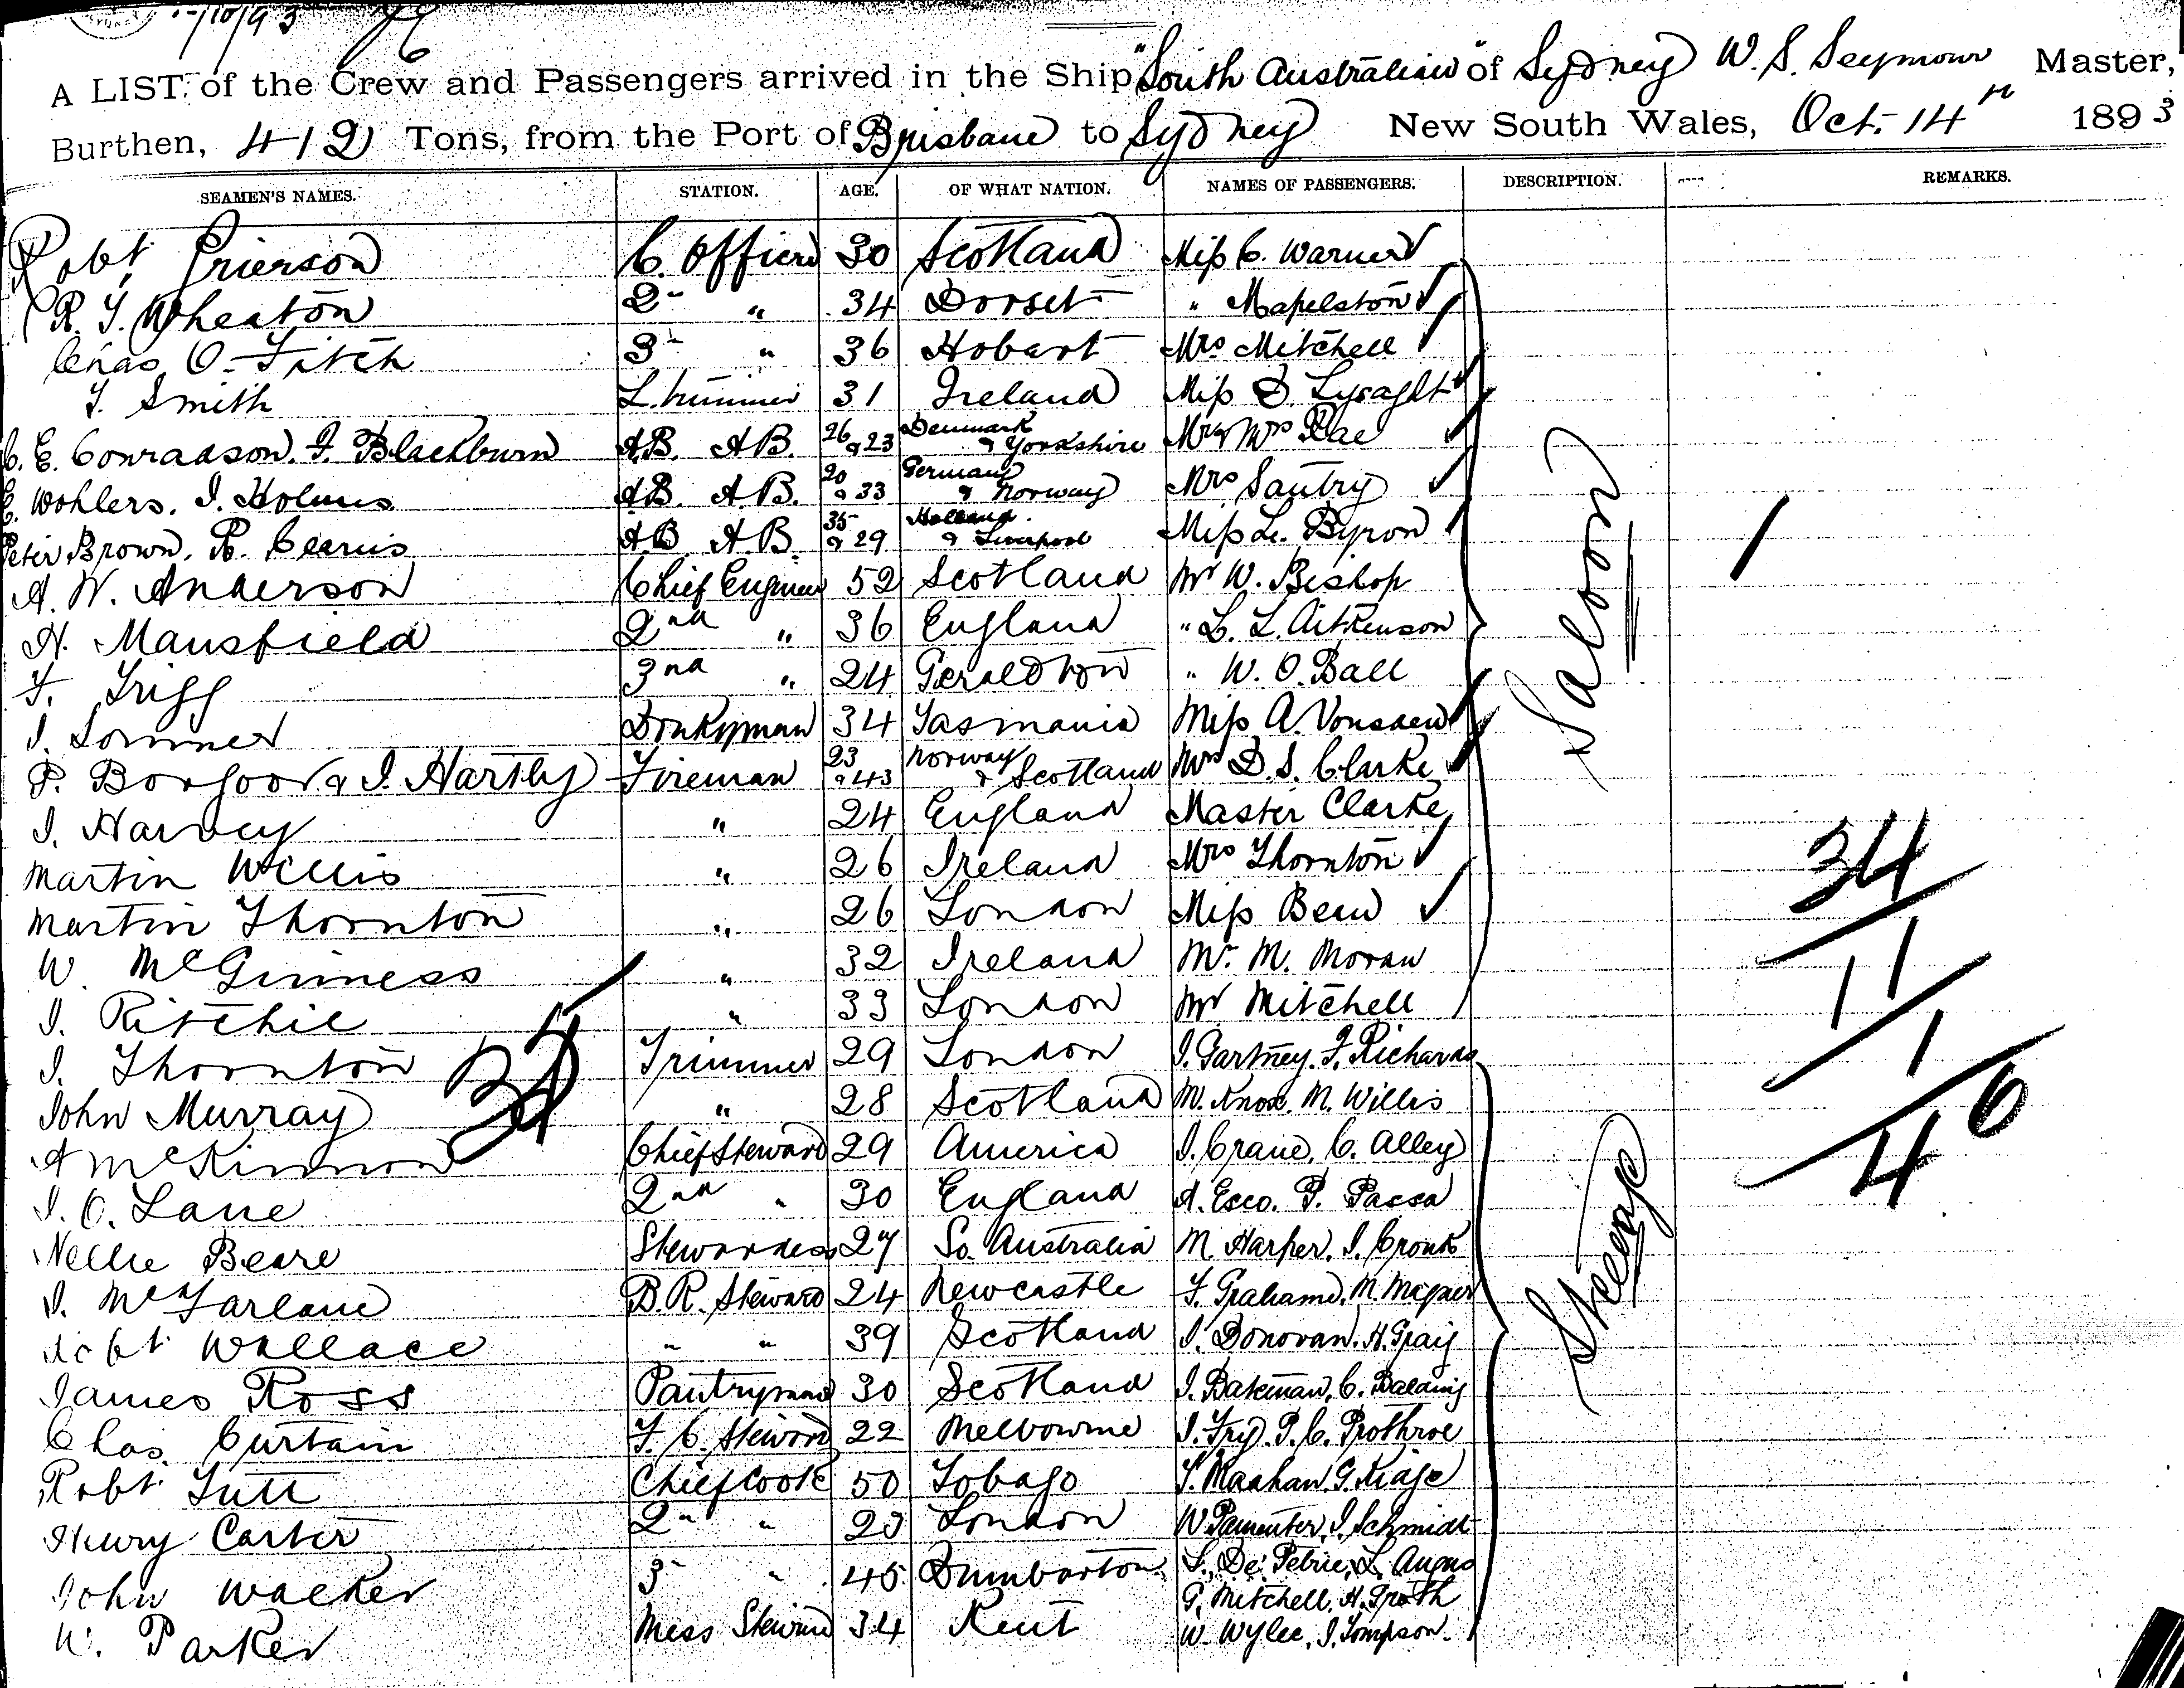 SYDNEY
/10/93
A LIST of the Crew and Passengers arrived in the Ship "South Australian" of Sydney W. S. Seymour Master,
Burthen, 412 Tons, from the Port of Brisbane to Sydney New South Wales, Oct. 14th 1893
SEAMEN'S NAMES. STATION. AGE. OF WHAT NATION. NAMES OF PASSENGERS. DESCRIPTION. REMARKS.
Robt Grierson C. Officer 30 Scotland Miss C. Warner
R. J. Wheaton 2" " 34 Dorset " Mapelston
Chas. O. Fitch 3" " 36 Hobart Mrs Mitchell
J. Smith L. trimmer 31 Ireland Miss D. Lysaght
C. E. Conradson. J. Blackburn AB. AB. 26 & 23 Denmark & Yorkshire Mr & Mrs Rae
E. Wohlers. J. Holmes AB. AB. 20 & 33 Germany & Norway Mrs Santry
Peter Brown. R. Cearns AB AB. 35 & 29 Holland & Liverpool Miss L. Byron
A. W. Anderson Chief Engineer 52 Scotland Mr W. Bishop
H. Mansfield 2nd " 36 England " L. L. Aitkenson
F. Trigg 3nd " 24 Geraldton " W. O. Ball
J. Sommer Donkyman 34 Tasmania Miss A. Vonsden
P. Borgoor & J. Hartley Fireman 23 & 43 Norway & Scotland Mrs D. S. Clarke
J. Harvey " 24 England Master Clarke
Martin Willis " 26 Ireland Mrs Thornton
Martin Thornton " 26 London Miss Bean
W. McGinness " 32 Ireland Mr. M. Moran
J. Ritchie " 33 London Mr Mitchell
Saloon
J. Thornton Trimmer 29 London J. Gartney. F. Richards
John Murray " 28 Scotland M. Knox. M. Willis
A McKinnon Chief Steward 29 America J. Crane, C. Alley
J. O. Lane 2nd " 30 England A. Esco. P. Passa
Nellie Beare Stewardess 27 So. Australia M. Harper. J. Cronk
J. McFarlane B.R. Steward 24 Newcastle F. Grahame. M.
Robt Wallace " " 39 Scotland J. Donovan. H. Graig
James Ross Pantryman 30 Scotland J. Bateman, C.
Chas. Curtain F. C. Steward 22 Melbourne J. Fry. P. C. Prothroe
Robt Tutt Chief Cook 50 Tobago G. Kidge
Henry Carter 2" " 23 London W. Pamenter, J. Schmidt
John Walker 3" " 45 Dumbarton S. De Petrie, L. Angus
G. Mitchell. H. Groth
W. Parker Mess Steward 34 Kent W. Wylee, J. Tompson.
Steerage
34
11
1
46